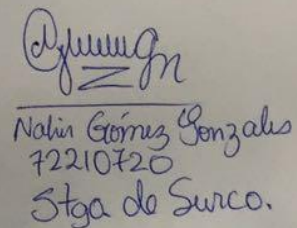 Nalin Gómez Gonzales
72210720
Stga de Surco.